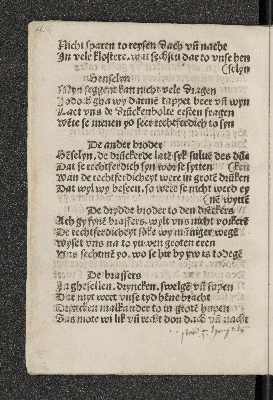 Nicht sparen to reysen dach vñ nacht
In vele klostere, wat schstu dar to vnse hen
(selyn
Henselyn
Myn seggent kan nicht vele dragen
Jodoch gha wy darme tappet beer vñ wyn
Laet vns de drückenbolte ersten fragen
Wete se menen yo seer rechtferdich to syn
De ander broder
Hēselyn, de drückerde latē syk sulues des dūn
Dat se rechtferdich syn wor se sytten
Wan de rechtferdicheyt were in grotē drūken
Dat wyl wy beseen, so were se nicht werd ey
(nē wyttē
De drydde broder to den drückers
Ach gy fynē brassers, wylt vns nicht vorkerē
De rechtferdicheyt soke wy māniger wegē
Wyset vns na to yuwen groten eren
Vns schent yo, wo se hir by yw is to degē
De brassers
Ja ghesellen, dryncken, swelgē vñ supen
Dat myt wert vnse tyd hēne bracht
Dryncken malkander to in grote hupen
Das mote wi lik vñ recht don dach vñ nacht